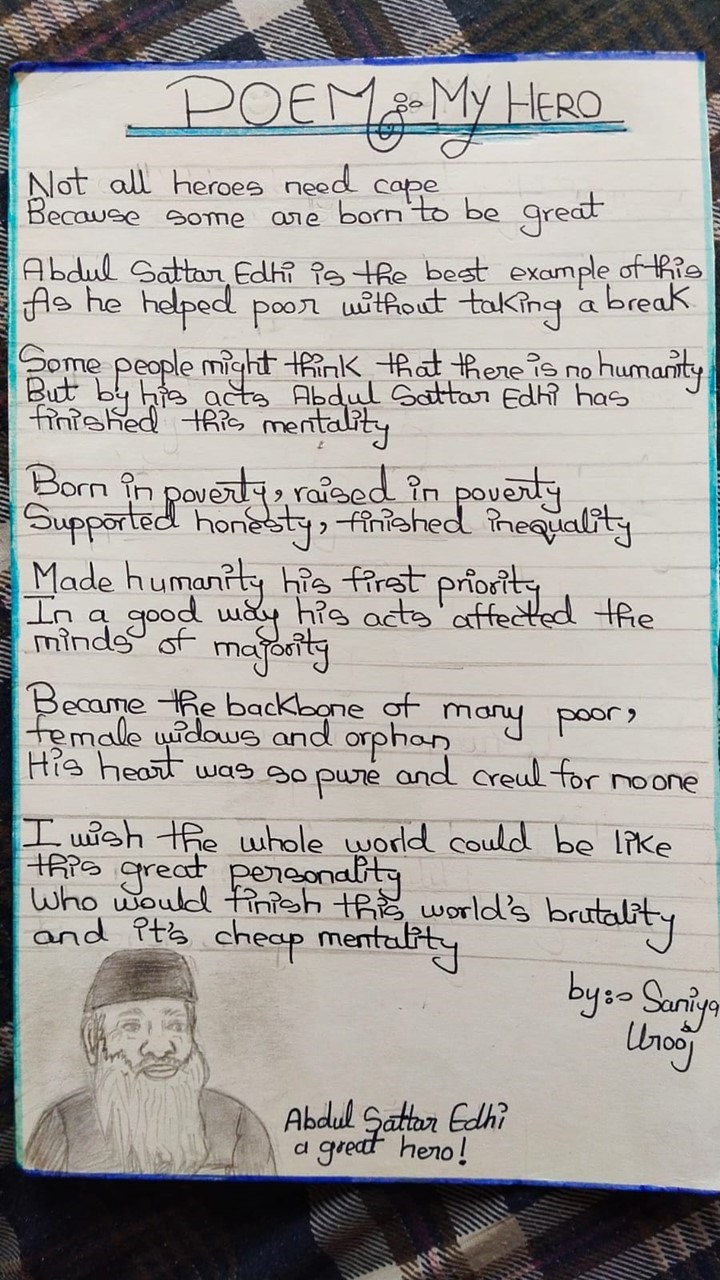 POEM:- MY HERO
Not all heroes need cape
Because some are born to be great
Abdul Sattar Edhi is the best example of this
As he helped poor without taking a break
Some people might think that there is no humanity
But by his acts Abdul Sattar Edhi has
finished this mentality
Born in poverty, raised in poverty
Supported honesty, finished inequality
Made humanity his first priority
In a good way his acts affected the
minds of majority
Became the backbone of many poor,
female widows and orphan
His heart was so pure and creul for no one
I wish the whole world could be like
this great personality
Who would finish this world's brutality
and it's cheap mentality
by:- Saniya
Urooj
Abdul Sattar Edhi
a great hero!